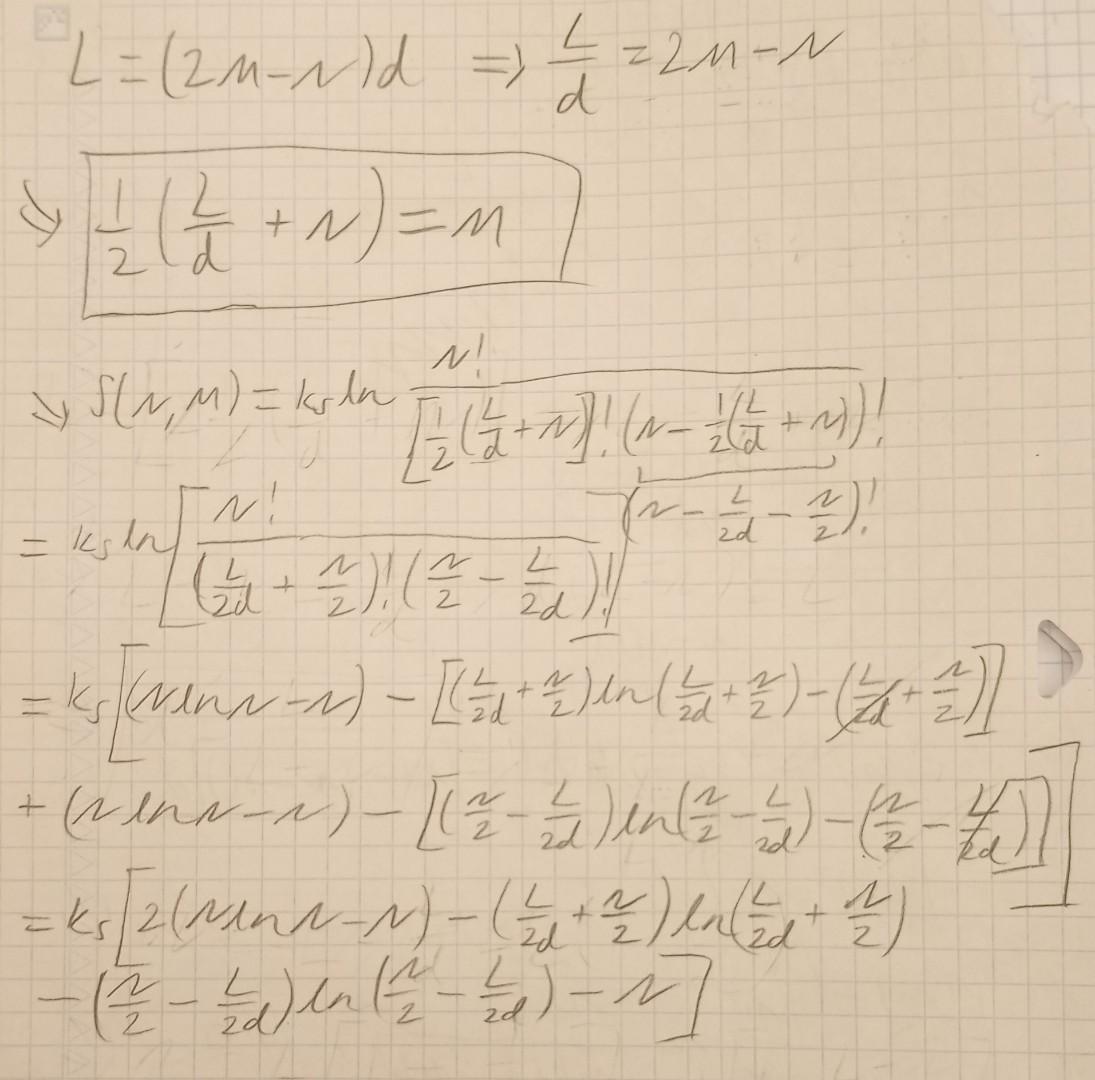 L = (2n - N)d ⇒ L/d = 2n - N
↘ 1/2 (L/d + N) = n
↘ S(N,n) = k_B ln N! / [1/2 (L/d + N)]! (N - 1/2 (L/d + N))!
(N - L/2d - N/2)!
= k_B ln [N! / (L/2d + N/2)! (N/2 - L/2d)!]
= k_B [(N ln N - N) - [(L/2d + N/2) ln (L/2d + N/2) - (L/2d + N/2)]
+ (N ln N - N) - [(N/2 - L/2d) ln (N/2 - L/2d) - (N/2 - L/2d)]]
= k_B [2(N ln N - N) - (L/2d + N/2) ln (L/2d + N/2)
- (N/2 - L/2d) ln (N/2 - L/2d) - N]